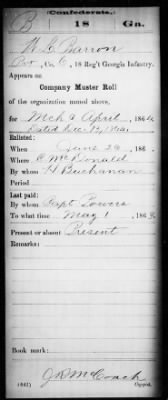 Confederate.
B 18 Ga.
W. L. Barron
Pvt, Co. C, 18 Reg't Georgia Infantry.
Appears on
Company Muster Roll
of the organization named above,
for Mch & April, 186
Dated
Enlisted:
When June 26, 186
Where C. McDonald
By whom H Buchanan
Period
Last paid:
By whom Capt Powers
To what time May 1, 186
Present or absent Present
Remarks:
Book mark:
J R McCoach
(642) Copyist.